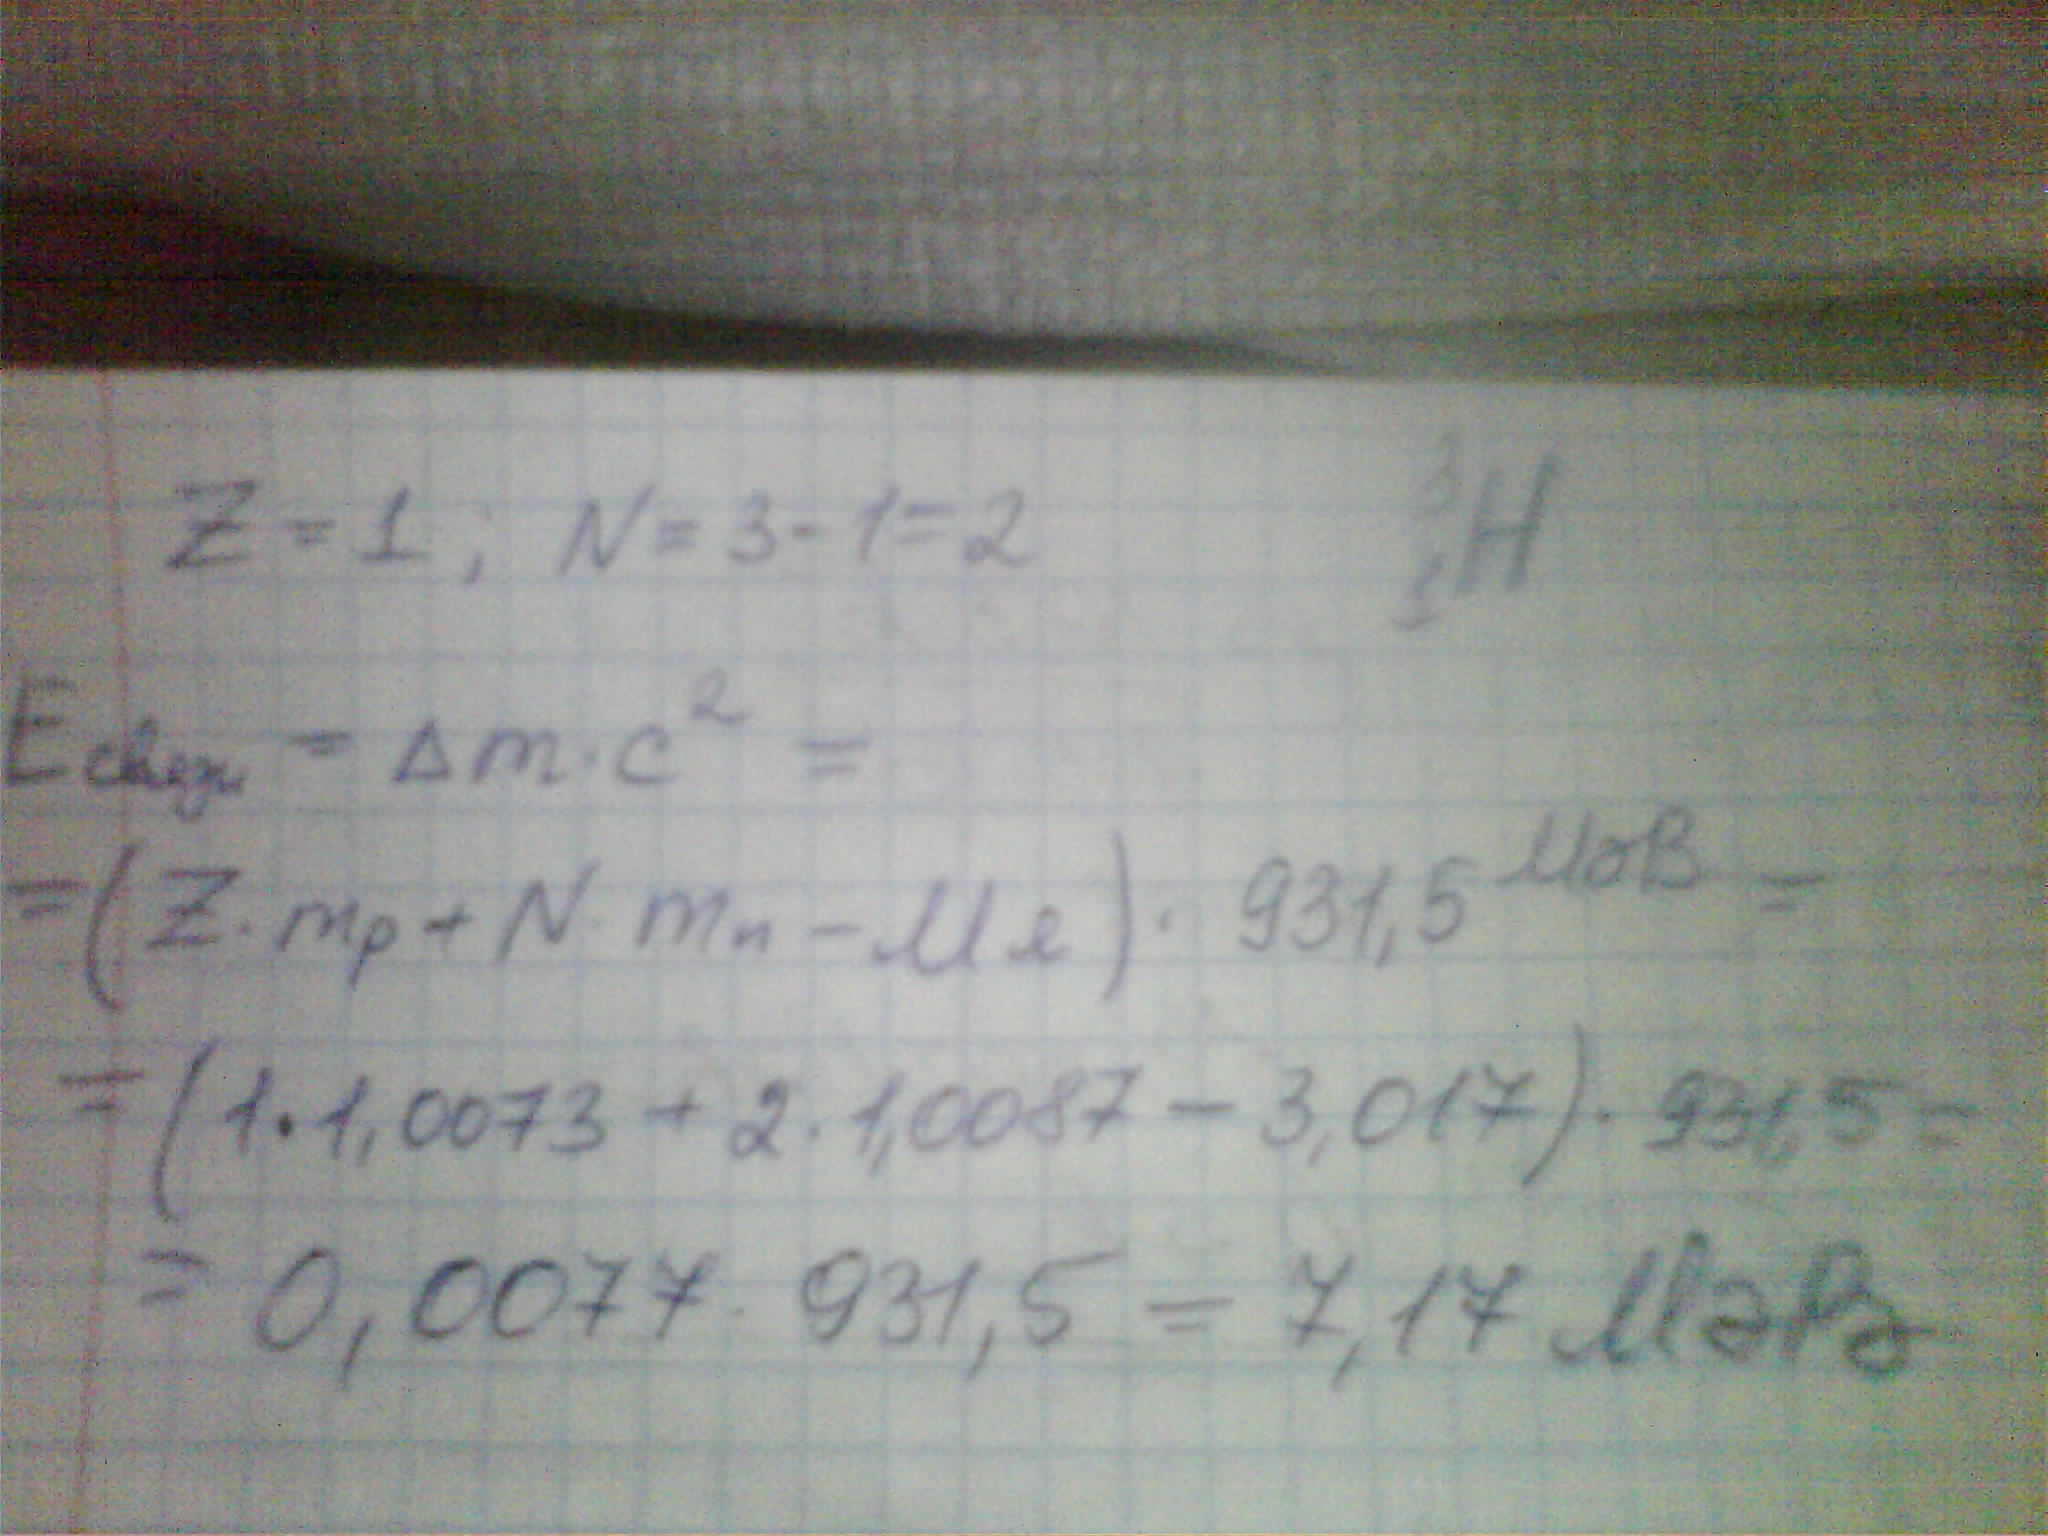 Z = 1; N = 3 - 1 = 2 ³₁H
Eсвязи = Δm·c² =
= (Z·mp + N·mn - Mя)·931,5 МэВ =
= (1·1,0073 + 2·1,0087 - 3,017)·931,5 =
= 0,0077·931,5 = 7,17 МэВ